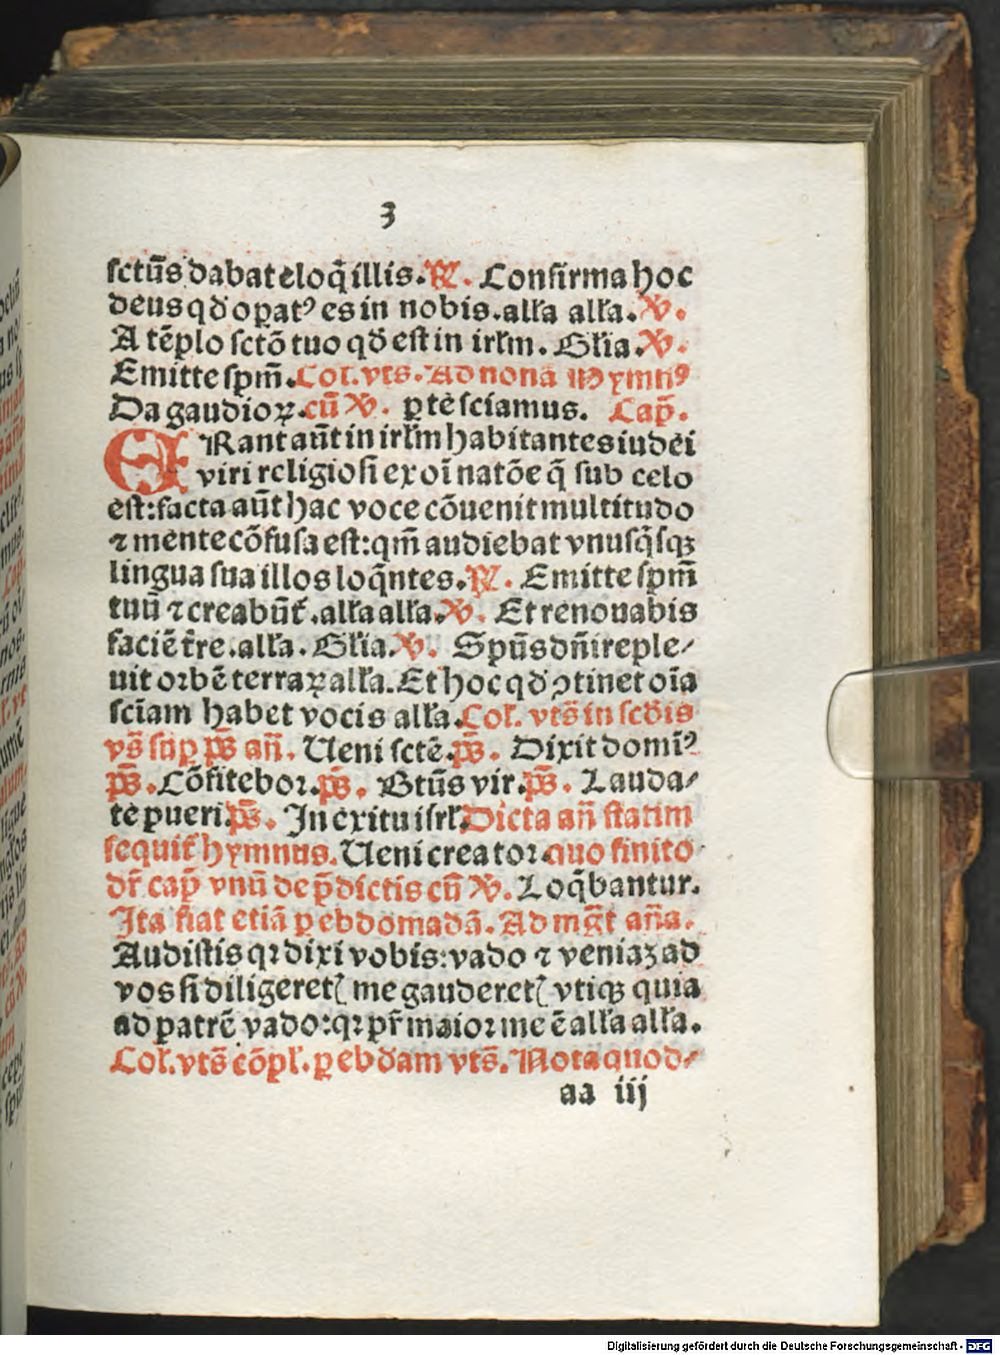 3
sctūs dabat eloq̄ illis. ℟. Confirma hoc
deus qd̄ opatꝰ es in nobis. alľa alľa. ℣.
A tēplo sctō tuo qd̄ est in irľm. Gľia. ℣.
Emitte spm̄. Coľ. vts. Ad nonā Hymnꝰ
Da gaudioꝝ. cū ℣. ꝑ te sciamus. Cap̄.
ERant aūt in irľm habitantes iudei
viri religiosi ex oī natōe q̄ sub celo
est: facta aūt hac voce cōuenit multitudo
⁊ mente cōfusa est: qm̄ audiebat vnusq̄sqꝫ
lingua sua illos loq̄ntes. ℟. Emitte spm̄
tuū ⁊ creabūt̄. alľa alľa. ℣. Et renouabis
faciē t̄re. alľa. Gľia. ℣. Spūs dn̄i reple⸗
uit orbē terraꝝ alľa. Et hoc qd̄ ꝯtinet oīa
scīam habet vocis alľa. Coľ. vts̄ in scd̄is
vs̄ sup ps̄ an̄. Ueni sctē. ps̄. Dixit domīꝰ
ps̄. Cōfitebor. ps̄. Btūs vir. ps̄. Lauda⸗
te pueri. ps̄. In exitu isrľ. Dicta an̄ statim
sequit̄ hymnus. Ueni creator. quo finito
dr̄ cap̄ vnū de p̄dictis cū ℣. Loq̄bantur.
Ita fiat etiā ꝑ ebdomadā. Ad mḡt an̄a.
Audistis qꝛ dixi vobis: vado ⁊ veniaꝫ ad
vos si diligeretꝭ me gauderetꝭ vtiqꝫ quia
ad patrē vado: qꝛ pr̄ maior me ē alľa alľa.
Coľ. vts̄ cōpľ. ꝑ ebdam vts̄. Nota quod⸗
aa iij
Digitalisierung gefördert durch die Deutsche Forschungsgemeinschaft - DFG